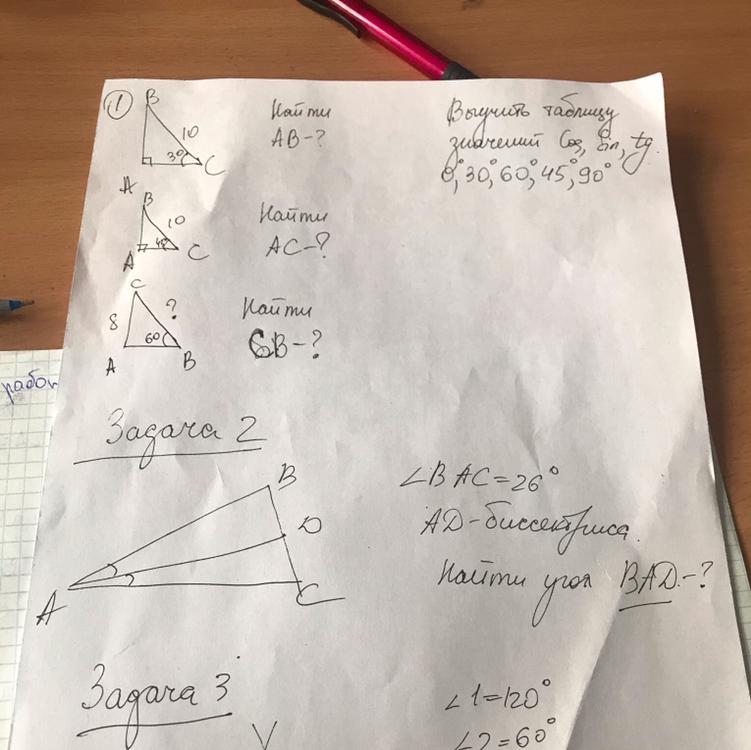 1
B
10
30°
A
C
Найти
AB-?
Выучить таблицу
значений Cos, Sin, tg.
0°, 30°, 60°, 45°, 90°
B
10
45°
A
C
Найти
AC-?
C
8
?
60°
A
B
Найти
CB-?
работ
Задача 2
B
D
A
C
∠BAC=26°
AD-биссектриса.
Найти угол BAD-?
Задача 3
∠1=120°
∠2=60°